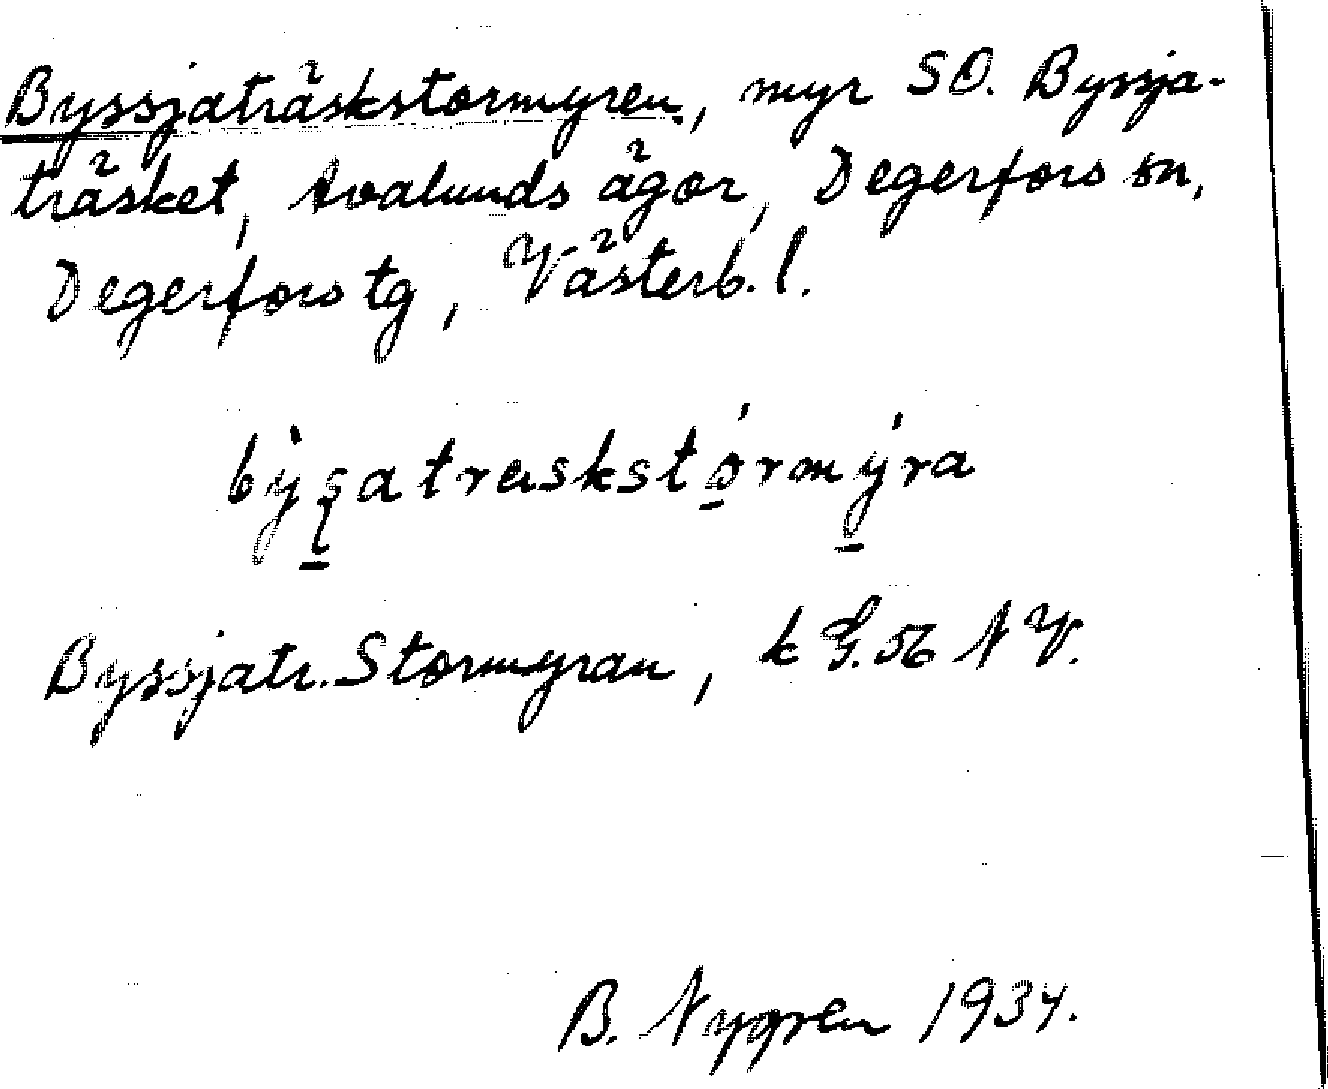 Byssjaträskstormyren, myr SO. Byssja-
träsket, Avalunds ägor, Degerfors sn,
Degerfors tg, Västerb. l.
Byssjatr. Stormyran, k G. 56 NV.
B. Nygren 1934.